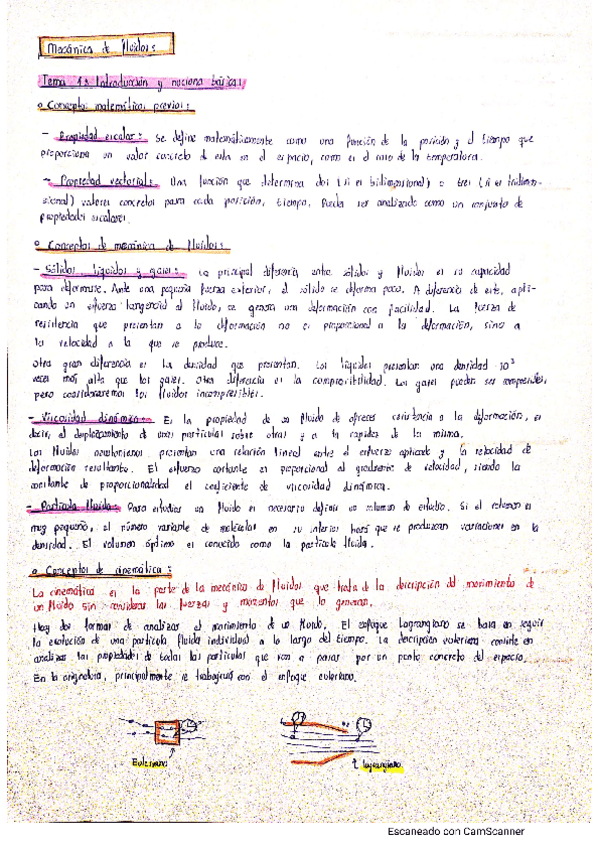 Mecánica de fluidos:
Tema 1: Introducción y nociones básicas:
o Conceptos matemáticos previos:
- Propiedad escalar: Se define matemáticamente como una función de la posición y el tiempo que
proporciona un valor concreto de esta en el espacio, como es el caso de la temperatura.
- Propiedad vectorial: Una función que determina dos (si es bidimensional) o tres (si es tridimen-
sional) valores concretos para cada posición, tiempo. Puede ser analizando como un conjunto de
propiedades escalares.
o Conceptos de mecánica de fluidos:
- Sólidos, líquidos y gases: La principal diferencia entre sólidos y fluidos es su capacidad
para deformarse. Ante una pequeña fuerza exterior, el sólido se deforma poco. A diferencia de este, apli-
cando un esfuerzo tangencial al fluido, se genera una deformación con facilidad. La fuerza de
resistencia que presentan a la deformación no es proporcional a la deformación, sino a
la velocidad a la que se produce.
Otra gran diferencia es la densidad que presentan. Los líquidos presentan una densidad 10³
veces más alta que los gases. Otra diferencia es la compresibilidad. Los gases pueden ser comprimidos,
pero consideraremos los fluidos incompresibles.
- Viscosidad dinámica: Es la propiedad de un fluido de ofrecer resistencia a la deformación, es
decir, al desplazamiento de unas partículas sobre otras y a la rapidez de la misma.
Los fluidos newtonianos presentan una relación lineal entre el esfuerzo aplicado y la velocidad de
deformación resultante. El esfuerzo cortante es proporcional al gradiente de velocidad, siendo la
constante de proporcionalidad el coeficiente de viscosidad dinámica.
- Partícula fluida: Para estudiar un fluido es necesario definir un volumen de estudio. Si el volumen es
muy pequeño, el número variante de moléculas en su interior hará que se produzcan variaciones en la
densidad. El volumen óptimo es conocido como la partícula fluida.
o Conceptos de cinemática:
La cinemática es la parte de la mecánica de fluidos que trata de la descripción del movimiento de
un fluido sin considerar las fuerzas y momentos que lo generan.
Hay dos formas de analizar el movimiento de un fluido. El enfoque Lagrangiano se basa en seguir
la evolución de una partícula fluida individual a lo largo del tiempo. La descripción euleriana consiste en
analizar las propiedades de todas las partículas que van a pasar por un punto concreto del espacio.
En la asignatura, principalmente se trabajará con el enfoque euleriano.
Euleriano
Lagrangiano
Escaneado con CamScanner